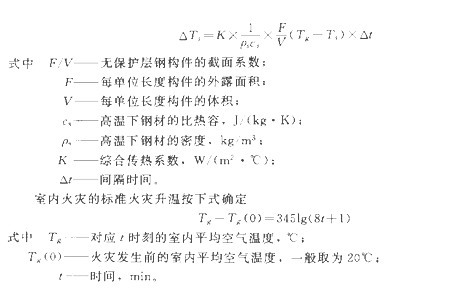 ΔTs=K×1/(ρscs)×F/V(Tg−Ts)×Δt
式中 F/V——无保护层钢构件的截面系数;
F——每单位长度构件的外露面积;
V——每单位长度构件的体积;
cs——高温下钢材的比热容,J/(kg·K);
ρs——高温下钢材的密度,kg/m³;
K——综合传热系数,W/(m²·℃);
Δt——间隔时间。
室内火灾的标准火灾升温按下式确定
Tg−Tg(0)=345lg(8t+1)
式中 Tg——对应 t 时刻的室内平均空气温度,℃;
Tg(0)——火灾发生前的室内平均空气温度,一般取为20℃;
t——时间,min。